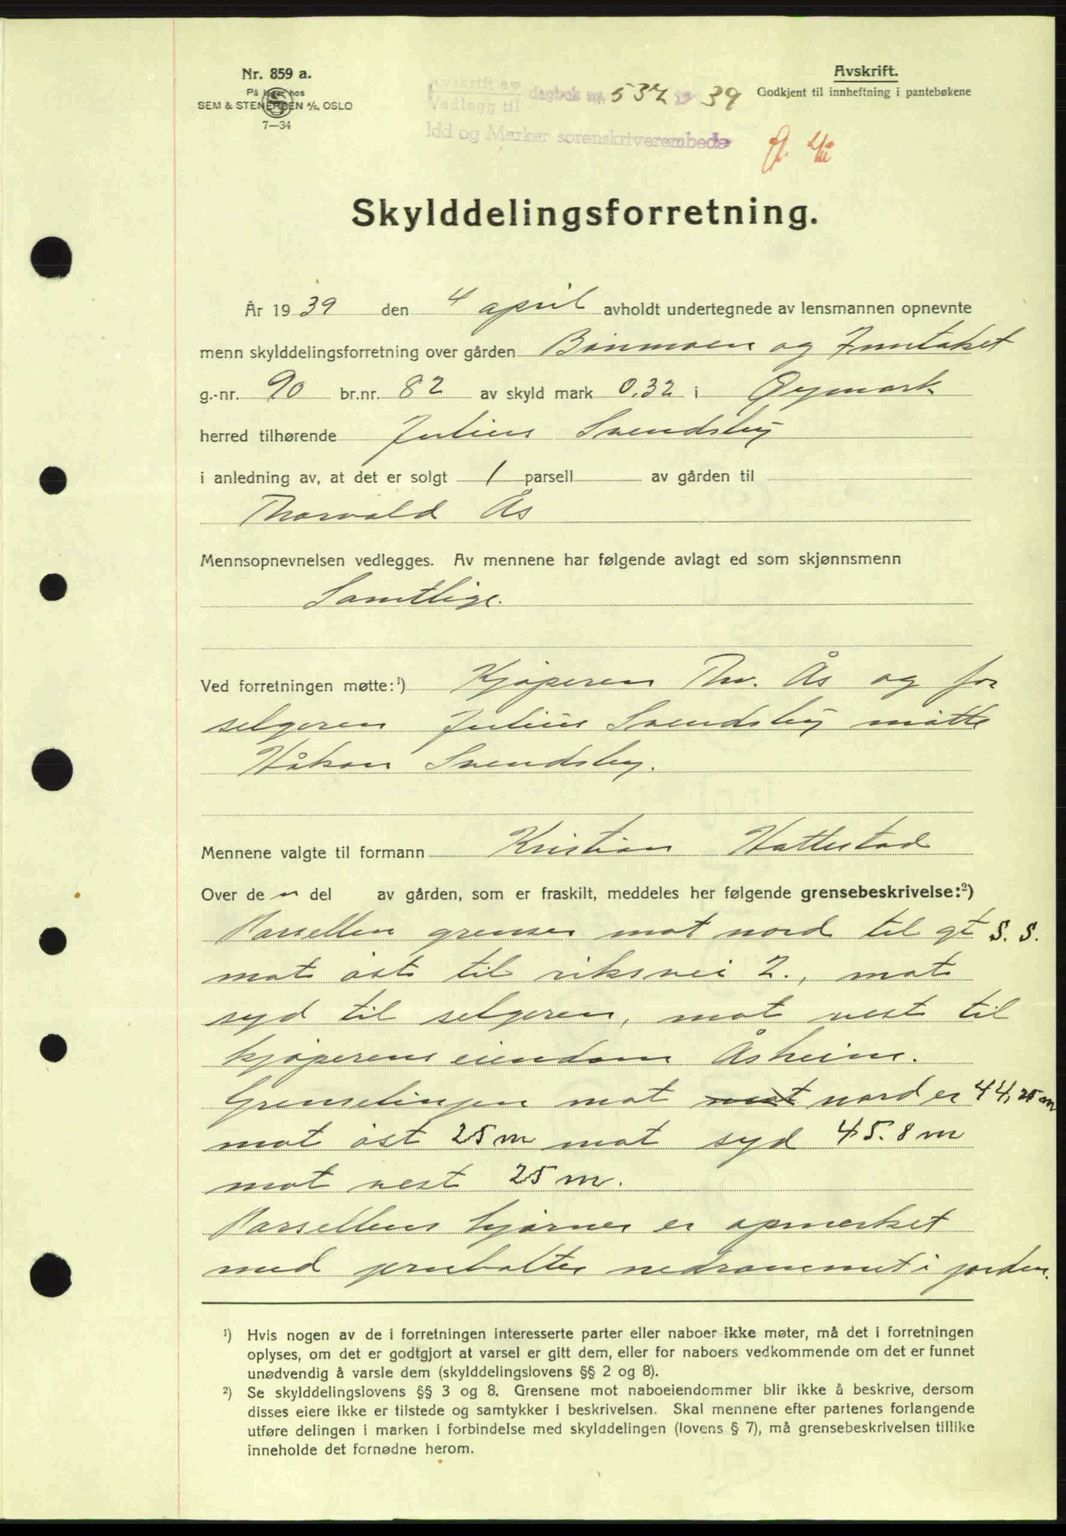 Nr. 859 a.
På lager hos
SEM & STENERSEN A/S, OSLO
7—34
Avskrift.
Godkjent til innheftning i pantebøkene
Avskrift av
Vedlegg til
dagbok nr. 537 19 39
Idd og Marker sorenskriverembede
Skylddelingsforretning.
År 19 39 den 4 april avholdt undertegnede av lensmannen opnevnte
menn skylddelingsforretning over gården Bønmoen og Inntaket
g.-nr. 90 br.nr. 82 av skyld mark 0,32 i Øymark
herred tilhørende Julius Svendsby
i anledning av, at det er solgt 1 parsell av gården til
Thorvald Ås
Mennsopnevnelsen vedlegges. Av mennene har følgende avlagt ed som skjønnsmenn
Samtlige.
Ved forretningen møtte:¹) Kjøperen Thv. Ås og for
selgeren Julius Svendsby møtte
Håkon Svendsby.
Mennene valgte til formann Kristian Hattestad
Over de n del av gården, som er fraskilt, meddeles her følgende grensebeskrivelse:²)
Parsellen grenser mot nord til gt S. S.
mot øst til riksvei 2., mot
syd til selgeren, mot vest til
kjøperens eiendom Åsheim.
Grenselinjen mot nord er 44,25 m
mot øst 25 m mot syd 45.8 m
mot vest 25 m.
Parsellens hjørner er opmerket
med jernbolter nedrammet i jorden.
¹) Hvis nogen av de i forretningen interesserte parter eller naboer ikke møter, må det i forretningen
oplyses, om det er godtgjort at varsel er gitt dem, eller for naboers vedkommende om det er funnet
unødvendig å varsle dem (skylddelingslovens §§ 2 og 8).
²) Se skylddelingslovens §§ 3 og 8. Grensene mot naboeiendommer blir ikke å beskrive, dersom
disses eiere ikke er tilstede og samtykker i beskrivelsen. Skal mennene efter partenes forlangende
utføre delingen i marken i forbindelse med skylddelingen (lovens § 7), må grensebeskrivelsen tillike
inneholde det fornødne herom.